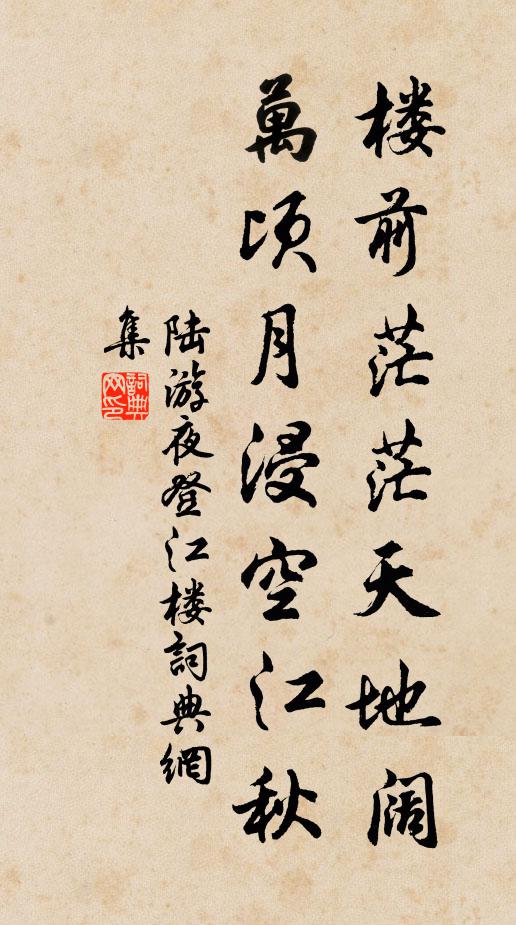 楼前茫茫天地阔
萬顷月浸空江秋
陆游夜登江楼詞典網
集
詞典网印